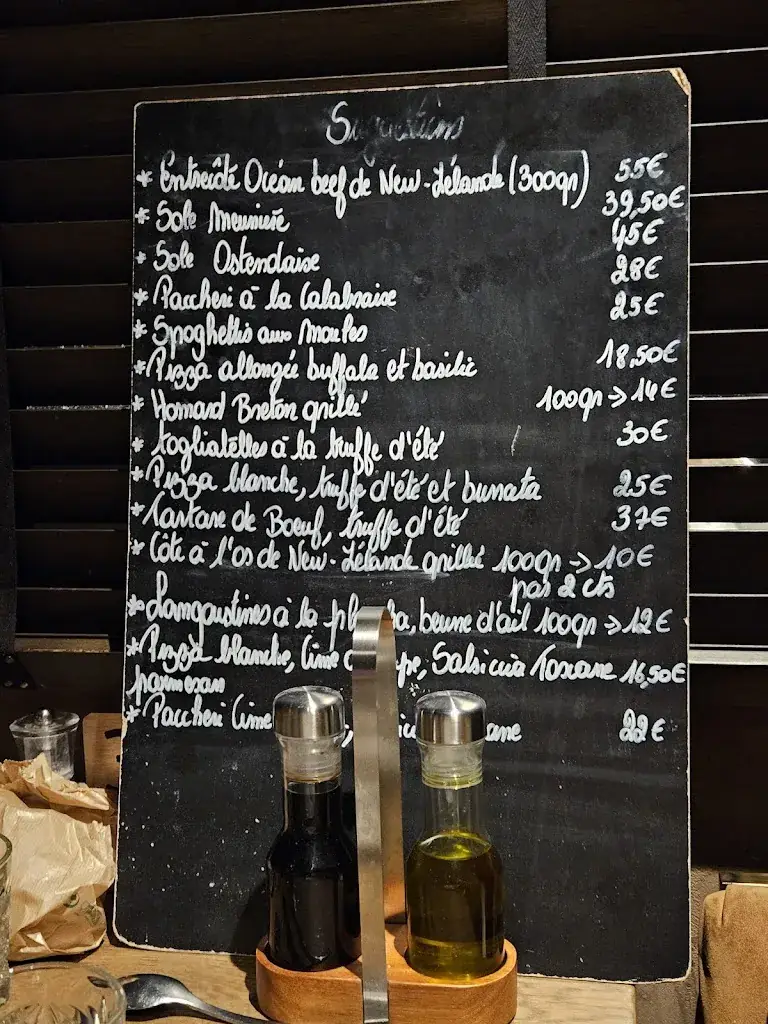 Suggestions
* Entrecôte Océan beef de New-Zélande (300gr) 55€
* Sole Meunière 39,50€
* Sole Ostendaise 45€
* Paccheri à la Calabraise 28€
* Spaghettis aux Moules 25€
* Pizza allongée buffala et basilic 18,50€
* Homard Breton grillé 100gr → 14€
* Tagliatelles à la truffe d'été 30€
* Pizza blanche, truffe d'été et burrata 25€
* Tartare de Boeuf, truffe d'été 37€
* Côte à l'os de New-Zélande grillée 100gr → 10€
par 2 cts
* Langoustines à la pl a, beurre d'ail 100gr → 12€
* Pizza blanche, Cime pe, Salsiccia Toscane 16,50€
parmesan
* Paccheri Cime ane 22€